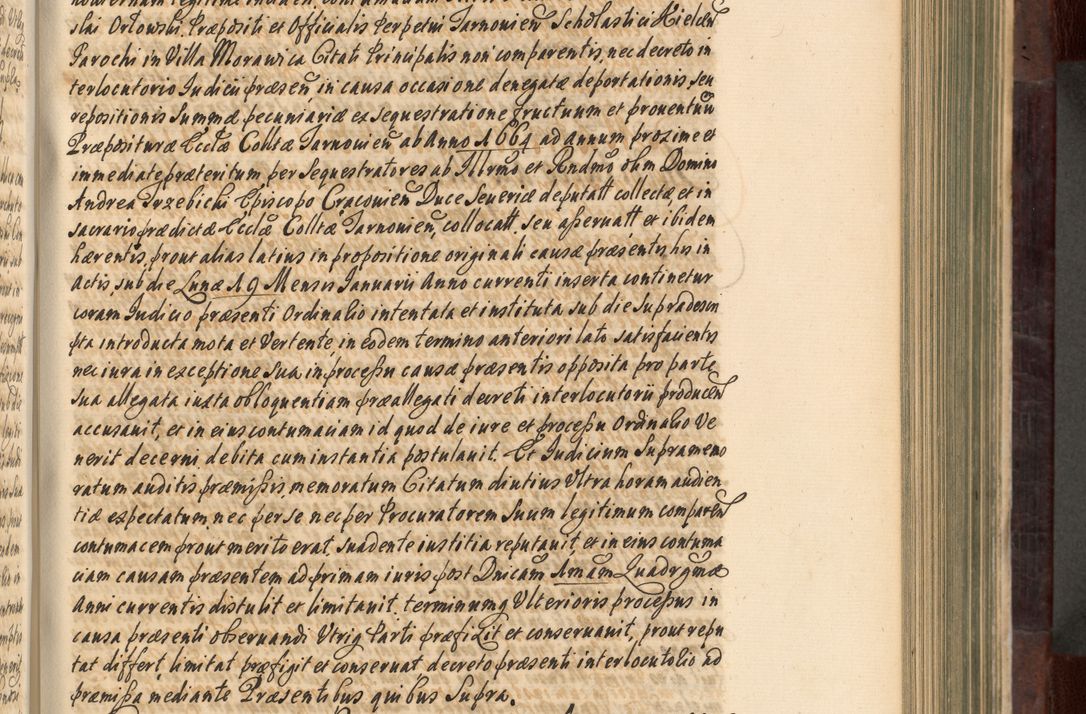 slai Orłowski Præpositi et Officialis perpetui Tarnovien̄ Scholastici Kielcen̄
Parochi in Villa Morawica Citati Principalis non comparentis, nec decreto in
terlocutorio Iudicii præsen̄, in causa occasione denegatæ deportationis, seu
repositionis Summæ pecuniariæ ex sequestratione fructuum et prouentuũ
Præposituræ Eccłæ Collłæ Tarnouien̄ ab Anno 1664 ad annum proxime et
immediate præteritum per Sequestratores ab Illrmo et Rndmo olim Domino
Andrea Trzebicki Episcopo Cracouien̄ Duce Seueriæ deputatt collectæ, et in
sacrario prædictæ Ecclæ Colltæ Tarnouien̄, collocatt. seu asseruatt, et ibidem
hærentis, prout alias latius in propositione originali causæ præsentis, his in
Actis, sub die Lunæ 19 Mensis Ianuarii Anno currenti inserta continetur
coram Iudicio præsenti Ordinalio intentata et instituta, sub die supradescri
pta introducta mota et Vertente, in eodem termino anteriori lato satisfacientis
nec iura in exceptione sua in processu causæ præsentis opposita pro parte
sua allegata iuxta obloquentiam præallegati decreti interlocutorii producen̄
accusauit, et in eius contumaciam id quod de iure et processu Ordinalio Ve
nerit decerni debita cum instantia postulauit. Et Iudicium Suprameno
ratum auditis præmissis, memoratum Citatum diutius Ultra horam audien
tiæ expectatum, nec per se nec per Procuratorem Suum legitimum comparen̄
contumacem prout merito erat, suadente iustitia reputauit et in eius contuma
ciam causam præsentem ad primam iuris post Dnicam 1mam Quadrgmæ
Anni currentis distulit et limitauit, terminumq Ulterioris processus in
causa præsenti obseruandi Utriq Parti præfixit et conseruauit, prout repu
tat differt, limitat præfigit et conseruat decreto præsenti interlocutolio ad
præmissa mediante Præsentibus quibus Supra.